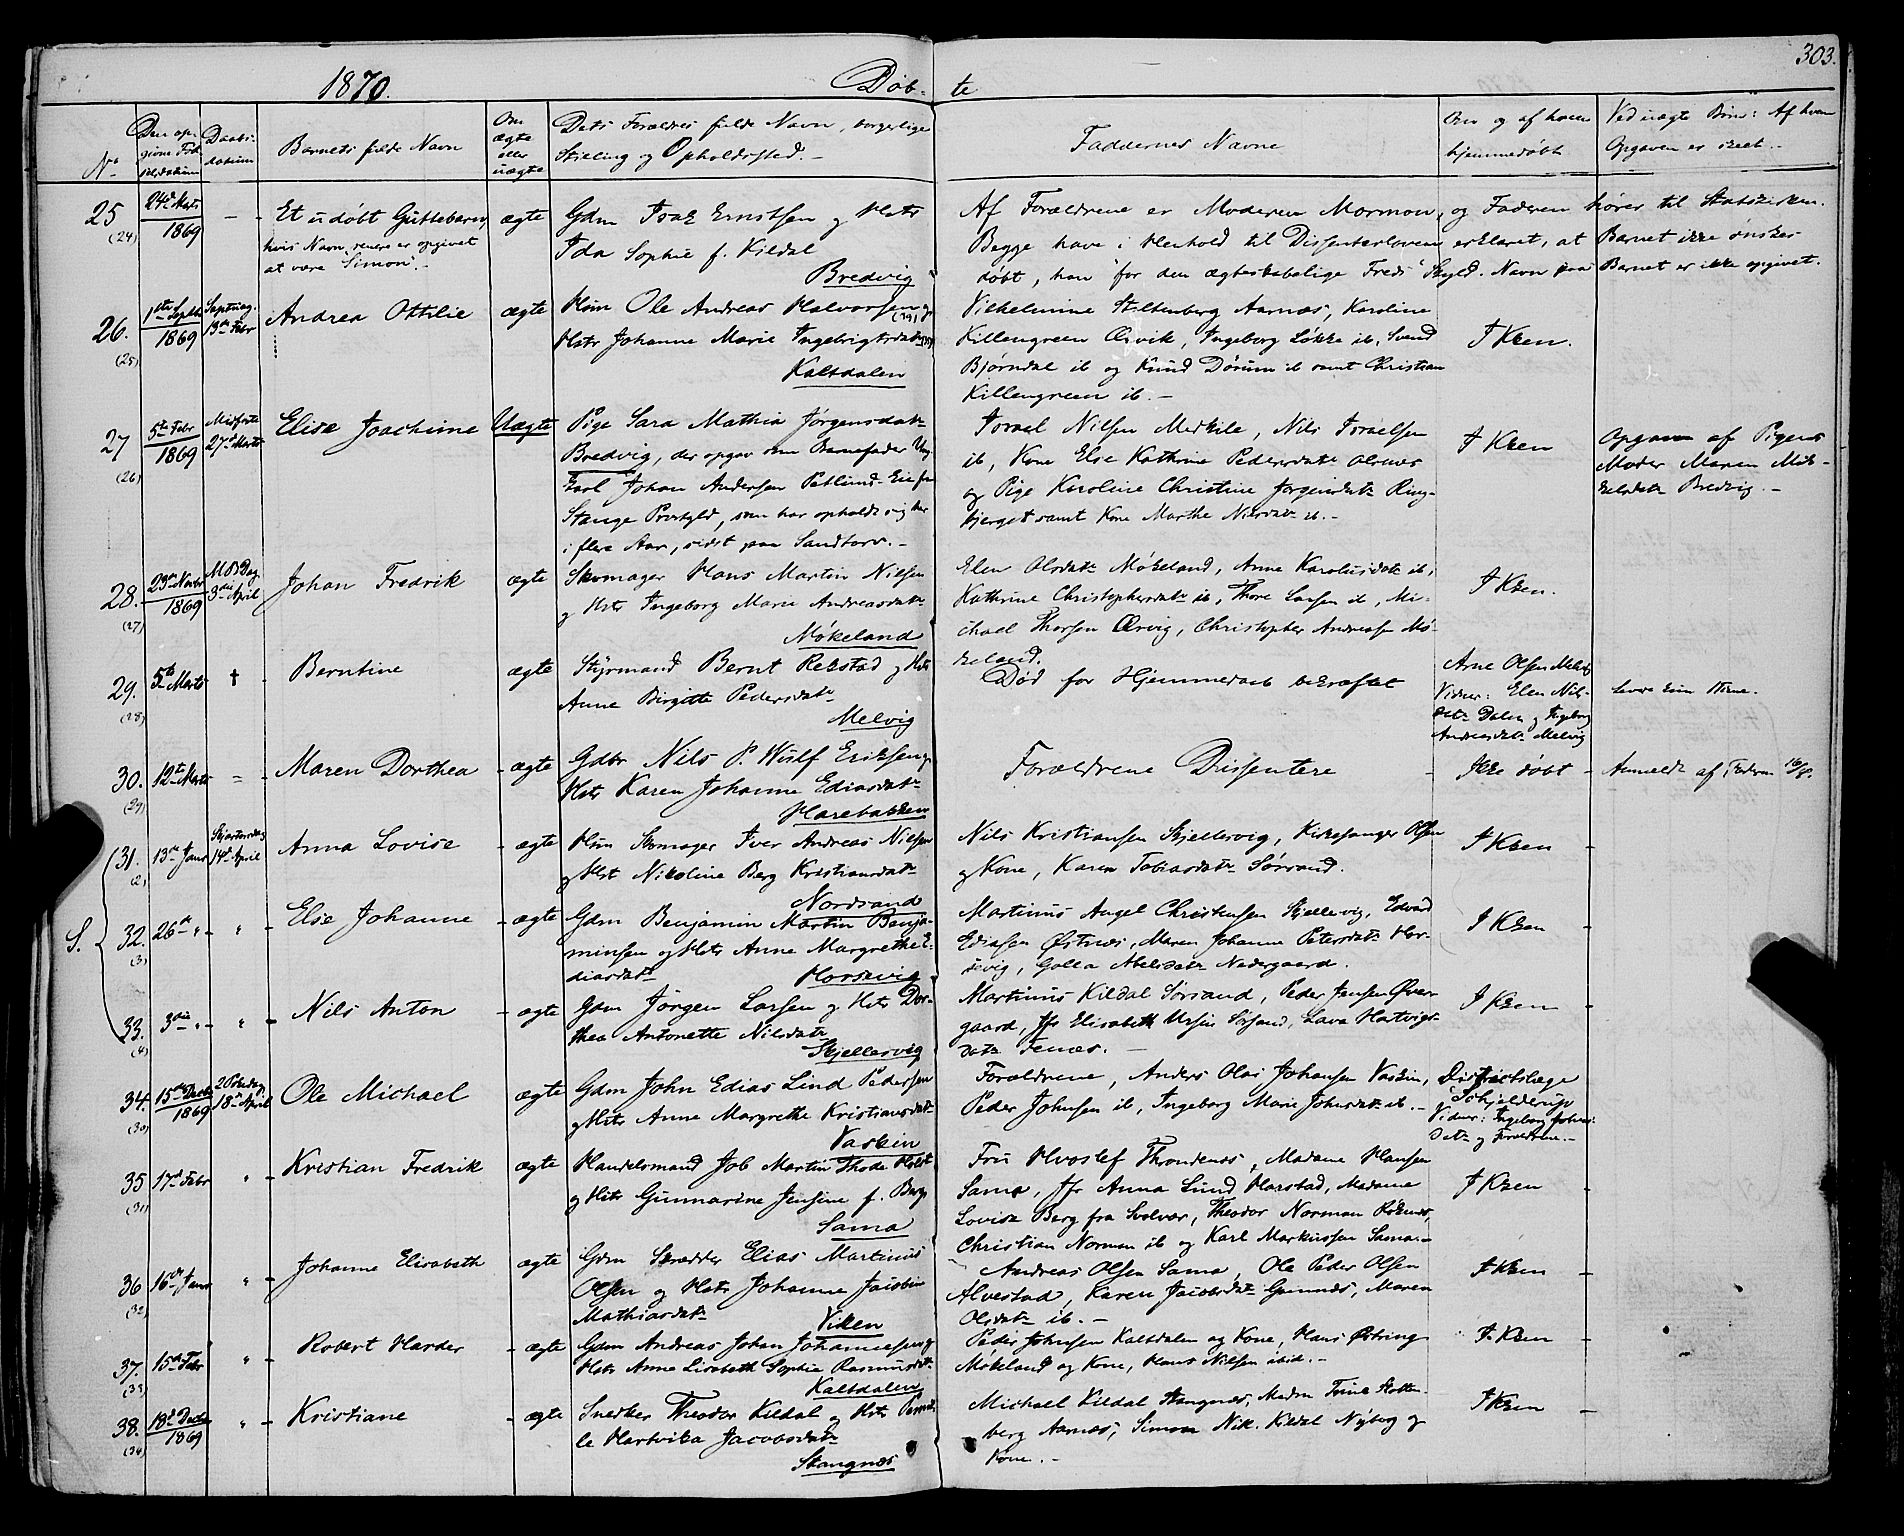 303.
1870. Døb- te
No
Den opgivne Fødselsdatum
Daabsdatum
Barnets fulde Navn
Om ægte eller uægte
Dets Forældres fulde Navn, borgerlige
Stilling og Opholdssted.
Faddernes Navne
Om og af hvem
hjemmedøbt
Ved uægte Børn: Af hvem
Opgaven er skeet.
25 (24) 24de Marts 1869 - Et udøbt Guttebarn, ægte Gdm Isak Ernstsen og Hstr
hvis Navn senere er opgivet
at være "Simon".
Ida Sophie f. Kildal
Bredvig
Af Forældrene er Moderen Mormon, og Faderen hører til Statskirken.
Begge have i Henhold til Dissenterloven erklæret, at Barnet ikke ønskes
døbt, han "for den ægteskabelige Freds" Skyld. Navn paa Barnet er ikke opgivet.
26. (25) 1ste Septbr 1869 Septuag. 13de Febr Andrea Ottilie ægte Hum Ole Andreas Halvorsen og
Hstr Johanne Marie Ingebrigtsdatr
Kaltdalen
Vilhelmine Stoltenberg Aarnæs, Karoline
Killengreen Ørvik, Ingeborg Løkke ib, Svend
Bjørndal ib og Knud Dørum ib samt Christian
Killengreen ib.
I Kken.
27 (26) 5te Febr 1869 Midfaste 27de Marts Elise Joachime Uægte Pige Sara Mathia Jørgensdatr
Bredvig, der opgav som Barnefader Ung-
karl Johan Andersen Petlund-Eie fra
Stange Prestgjeld, som har opholdt sig her
i flere Aar, sidst paa Sandtorv.
Israel Nilsen Medkile, Nils Israelsen
ib, Kone Else Kathrine Pedersdatr Olsnes
og Pige Karoline Christine Jørgensdatr Ring-
bjerget samt Kone Marthe Nilsdatr ib.
I Kken
Opgaven af Pigens
Moder Maren Mik-
kelsdatr Bredvig.
28. (27) 23de Novbr 1869 3die April Johan Fredrik ægte Skomager Hans Martin Nilsen
og Hstr Ingeborg Marie Andreasdatr
Møkeland
Elen Olsdatr Møkeland, Anne Karolusdatr ib,
Kathrine Christophersdatr ib, Thore Larsen ib, Mi-
chael Thorsen Ørvig, Christopher Andreasen Mø-
keland.
I Kken.
29. (28) 5te Marts † Berntine ægte Styrmand Bernt Rekstad og Hstr
Anne Birgitte Pedersdatr
Melvig
Død før Hjemmedaab bekræftet
Arne Olsen Melvig
Vidner: Elen Nils-
datr Dalen og Ingeborg
Andreasdatr Melvig
30. (29) 12te Marts - Maren Dorthea ægte Gdbr Nils P. Wulf Eriksen og
Hstr Karen Johanne Ediasdatr
Harebakken
Forældrene Dissentere
Ikke døbt
Anmeldt af Faderen
31. (2) 13de Janr Skjærtorsdag 14de April Anna Lovise ægte Hum Skomager Iver Andreas Nilsen
og Hstr Nikoline Berg Kristiansdatr
Nordsand
Nils Kristiansen Skjellesvig, Kirkesanger Olsen
og Kone, Karen Tobiasdatr Sørsand.
I Kken
S. 32. (3) 26de " " Else Johanne ægte Gdm Benjamin Martin Benja-
minsen og Hstr Anne Margrethe E-
diasdatr
Horsevig
Martinus Angel Christensen Skjellesvig, Edvard
Ediasen Østnæs, Maren Johanne Petersdatr Hor-
sevig, Golla Abelsdatr Nedergaard.
I Kken
33. (4) 3die " " Nils Anton ægte Gdm Jørgen Larsen og Hstr Dor-
thea Antonette Nilsdatr
Skjellesvig
Martinus Kildal Sørsand, Peder Jensen Øver-
gaard, Jfr Elisabeth Ursin Sørsand, Lava Hartvigs-
datr Fenes.
I Kken
34. (30) 15de Decbr 1869 2 Paaskedag 18de April Ole Michael ægte Gdm John Edias Lind Pedersen
og Hstr Anne Margrethe Kristiansdatr
Vaskin
Forældrene, Anders Olai Johansen Vaskin,
Peder Johnsen ib, Ingeborg Marie Johnsdatr ib.
Distriktslæge
Schjelderup
Vidner: Ingeborg Johns-
datr og Forældrene.
35 (31) 17de Febr " Kristian Fredrik ægte Handelsmand Job Martin Thode Holst
og Hstr Gunnarine Jensine f. Berg
Sama
Fru Hvoslef Throndenæs, Madame Hansen
Sama, Jfr Anna Lund Harstad, Madame
Lovise Berg fra Svolvær, Theodor Norman Røknes,
Christian Norman ib og Karl Markussen Sama.
I Kken
36 (32) 16de Janr " Johanne Elisabeth ægte Gdm Skrædder Elias Martinus
Olsen og Hstr Johanne Jacobine
Mathiasdatr
Viken
Andreas Olsen Sama, Ole Peder Olsen
Alvestad, Karen Jacobsdatr Gunnæs, Maren
Olsdatr ib.
I Kken
37. (33) 15de Febr " Robert Harder ægte Gdm Andreas Johan Johannesen og
Hstr Anne Lisabeth Sophie Rasmusdatr
Kaltdalen
Peder Johnsen Kaltdalen og Kone, Hans Østring
Møkeland og Kone, Hans Nilsen ibid.
I Kken
38. (34) 18de Decbr 1869 " Kristiane ægte Snedker Theodor Kildal og Hstr Pernil-
le Hartvika Jacobsdatr
Stangnæs
Michael Kildal Stangnæs, Madm Trine Stolten-
berg Aarnæs, Simon Nik. Kildal Nyborg og
Kone.
I Kken